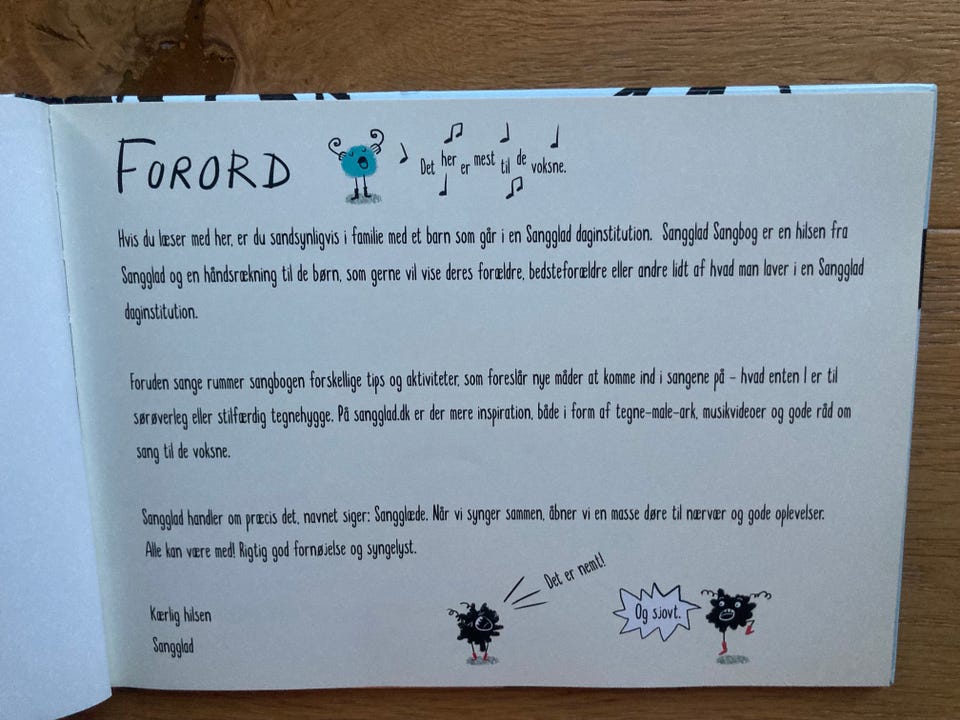 FORORD
Det her er mest til de voksne.
Hvis du læser med her, er du sandsynligvis i familie med et barn som går i en Sangglad daginstitution. Sangglad Sangbog er en hilsen fra
Sangglad og en håndsrækning til de børn, som gerne vil vise deres forældre, bedsteforældre eller andre lidt af hvad man laver i en Sangglad
daginstitution.
Foruden sange rummer sangbogen forskellige tips og aktiviteter, som foreslår nye måder at komme ind i sangene på – hvad enten I er til
sørøverleg eller stilfærdig tegnehygge. På sangglad.dk er der mere inspiration, både i form af tegne-male-ark, musikvideoer og gode råd om
sang til de voksne.
Sangglad handler om præcis det, navnet siger: Sangglæde. Når vi synger sammen, åbner vi en masse døre til nærvær og gode oplevelser.
Alle kan være med! Rigtig god fornøjelse og syngelyst.
Det er nemt!
Og sjovt.
Kærlig hilsen
Sangglad